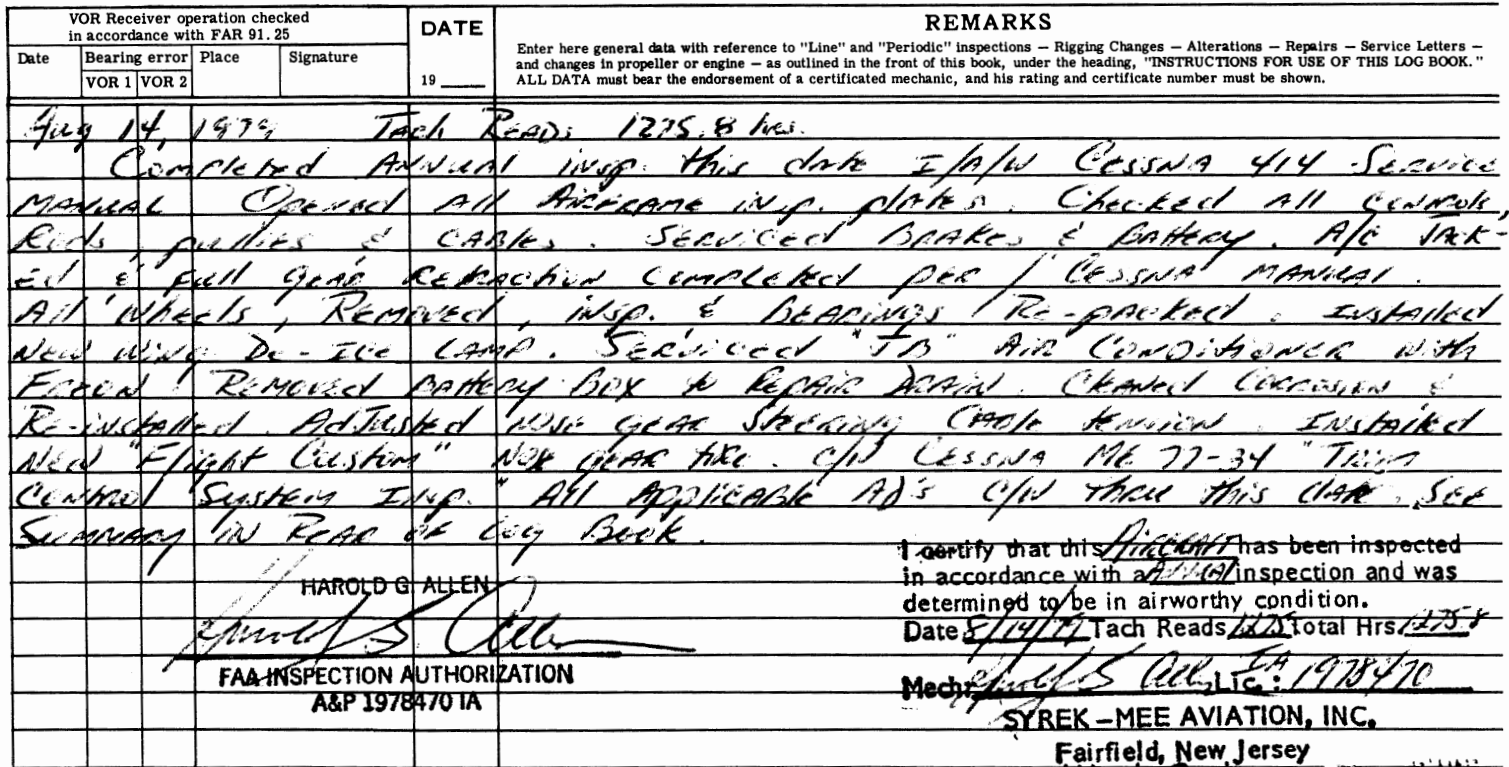 VOR Receiver operation checked
in accordance with FAR 91.25
Date Bearing error Place Signature
VOR 1 VOR 2
DATE
19
REMARKS
Enter here general data with reference to "Line" and "Periodic" inspections — Rigging Changes — Alterations — Repairs — Service Letters —
and changes in propeller or engine — as outlined in the front of this book, under the heading, "INSTRUCTIONS FOR USE OF THIS LOG BOOK."
ALL DATA must bear the endorsement of a certificated mechanic, and his rating and certificate number must be shown.
Aug 14, 1979 Tach Reads 1275.8 hrs.
Completed Annual insp. this date I/A/W Cessna 414 Service
Manual Opened All Airframe insp. plates. Checked All controls,
Rods, pullies & cables. Serviced Brakes & Battery. A/C Jack-
ed & full gear retraction completed per Cessna manual.
All wheels, Removed, insp. & Bearings Re-packed. Installed
New wing De-Ice Lamp. Serviced "JB" Air Conditioner with
Freon. Removed Battery Box to Repair Drain. Cleaned Corrosion &
Re-installed. Adjusted nose gear steering cable tension. Installed
New "Flight Custom" nose gear tire. C/W Cessna ME 77-34 "Trim
Control System Insp." All Applicable AD's C/W thru this date. See
Summary in Rear of Log Book.
I certify that this Aircraft has been inspected
in accordance with a Annual inspection and was
determined to be in airworthy condition.
Date 8/14/79 Tach Reads 1275 Total Hrs. 1275.8
HAROLD G. ALLEN
Harold G Allen
FAA INSPECTION AUTHORIZATION
A&P 1978470 IA
Mechr Harold G Allen Lic.: IA 1978470
SYREK-MEE AVIATION, INC.
Fairfield, New Jersey